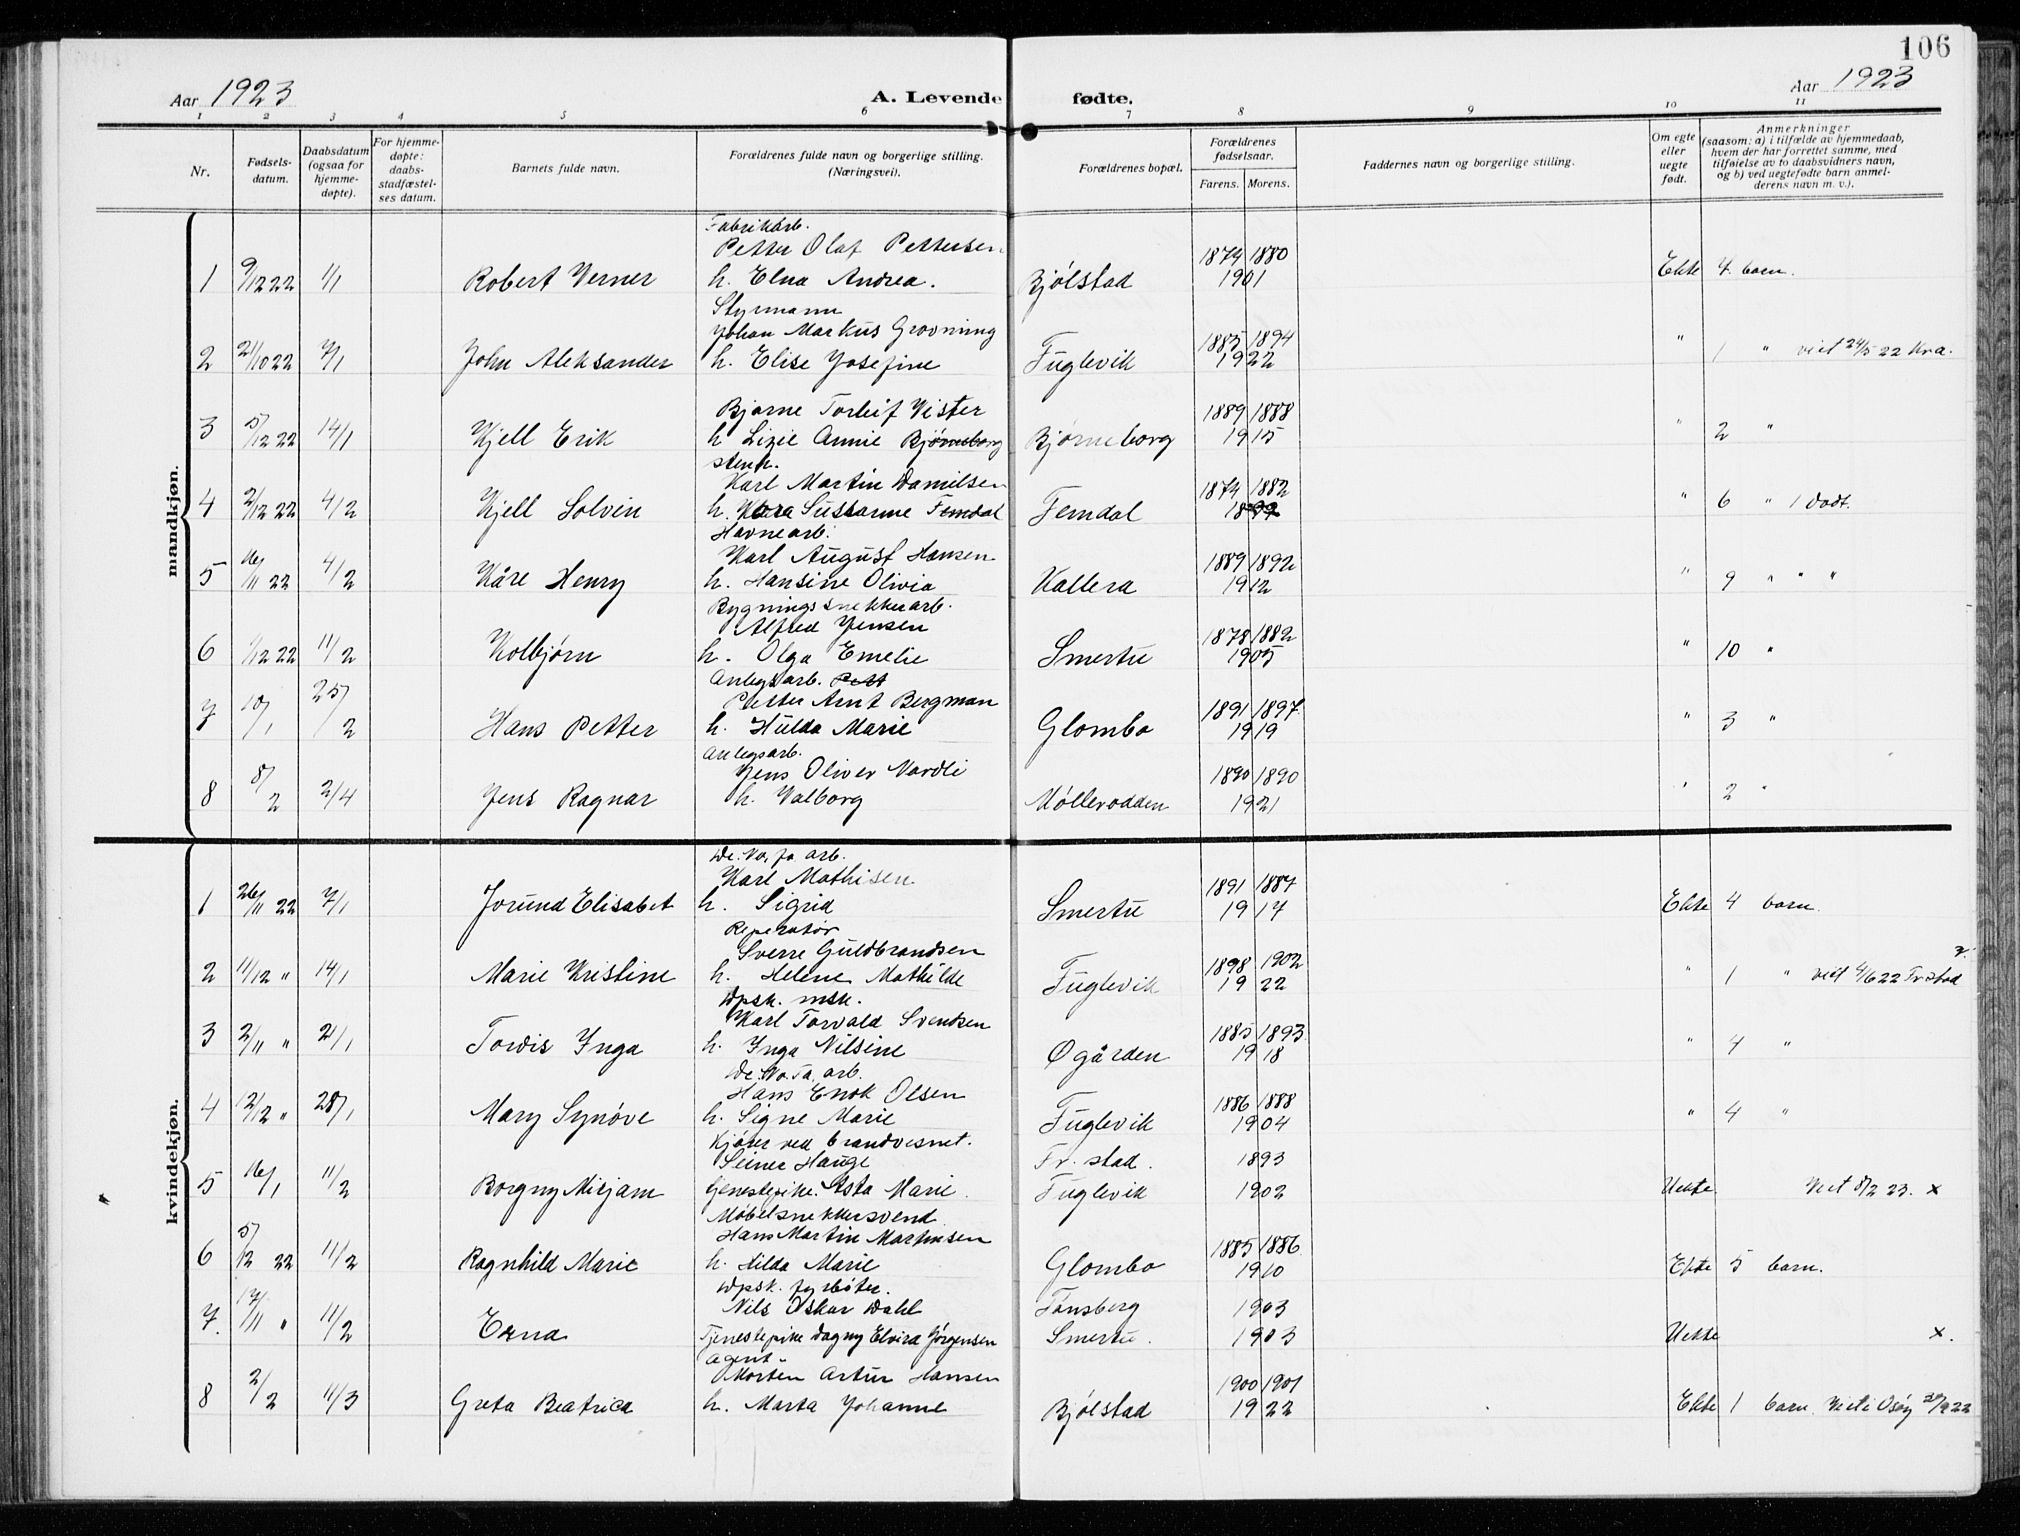 106
Aar 1923
A. Levende fødte.
Aar 1923
1 2 3 4 5 6 7 8 9 10 11
Nr.
Fødsels-
datum.
Daabsdatum
(ogsaa for
hjemme-
døpte).
For hjemme-
døpte:
daabs-
stadfæstel-
ses datum.
Barnets fulde navn.
Forældrenes fulde navn og borgerlige stilling.
(Næringsvei).
Forældrenes bopæl.
Forældrenes
fødselsaar.
Farens. Morens.
Faddernes navn og borgerlige stilling.
Om egte
eller
uegte
født.
Anmerkninger
(saasom: a) i tilfælde av hjemmedaab,
hvem der har forrettet samme, med
tilføielse av to daabsvidners navn,
og b) ved uegtefødte barn anmel-
derens navn m. v.).
mandkjøn.
Fabrikarb.
Petter Olaf Pettersen 1874 1880
1 9/12 22 1/1 Robert Verner h. Elna Andrea. Bjølstad 1901 Ekte 4 barn.
Styrmann
Johan Markus Grovning 1885 1894
2 21/10 22 7/1 John Aleksander h. Elise Josefine Fuglevik 1922 " 1 " viet 24/5 22 Kra.
Bjarne Torleif Vister 1889 1888
3 5/12 22 14/1 Kjell Erik h Lizie Annie Bjørneborg Bjørneborg 1915 " 2 "
stenh.
Karl Martin Danielsen 1874 1882
4 2/12 22 4/2 Kjell Solvin h. Kara Susanne Femdal Femdal " 6 " 1 dødt.
Havnearb.
Karl August Hansen 1889 1892
5 16/11 22 4/2 Kåre Henry h. Hansine Olivia Kallera 1912 " 9 " " "
Bygningssnekkerarb.
Alfred Jensen 1878 1882
6 1/12 22 11/2 Kolbjørn h. Olga Emelie Smertu 1905 " 10 "
Anlegsarb. Pett
Petter Arnt Bergman 1891 1897
7 10/1 25/2 Hans Petter h. Hulda Marie Glombo 1919 " 3 "
Anlegsarb.
Jens Oliver Nordli 1890 1890
8 8/2 2/4 Jens Ragnar h. Valborg Møllerodden 1921 " 2 "
kvindekjøn.
De. No. fa. arb.
Karl Mathisen 1891 1887
1 26/11 22 7/1 Jorund Elisabet h. Sigrid Smertu 1917 Ekte 4 barn.
Reperatør
Sverre Guldbrandsen 1898 1902
2 11/12 " 14/1 Marie Kristine h. Helene Mathilde Fuglevik 1922 " 1 " viet 4/6 22 Fr.stad
Dpsk. msk.
Karl Torvald Svendsen 1885 1893
3 2/11 " 21/1 Tordis Inga h. Inga Nilsine Øgården 1918 " 4 "
De. No. Fa. arb.
Hans Enok Olsen 1886 1888
4 12/12 " 28/1 Mary Synøve h. Signe Marie Fuglevik 1904 " 4 "
Kjører ved brandvesnet.
Seiner Hauge Fr. stad. 1893
5 16/1 11/2 Borgny Mirjam Tjenestepike. Asta Marie. Fuglevik 1902 Uekte Viet 8/2 23. x
Møbelsnekkersvend
Hans Martin Martinsen 1885 1886
6 5/12 22 11/2 Ragnhild Marie h. Hilda Marie Glombo 1910 Ekte 5 barn.
Dpsk. fyrbøter.
Nils Oskar Dahl Tønsberg 1903
7. 17/11 " 11/2 Erna Tjenestepike Dagny Elvira Jørgensen Smertu. 1903 Uekte x.
Agent.
Morten Artur Hansen 1900 1901
8 2/2 11/3 Greta Beatrice h. Marta Johanne Bjølstad 1922 Ekte 1 barn. Viet i Osøy 30/9 22